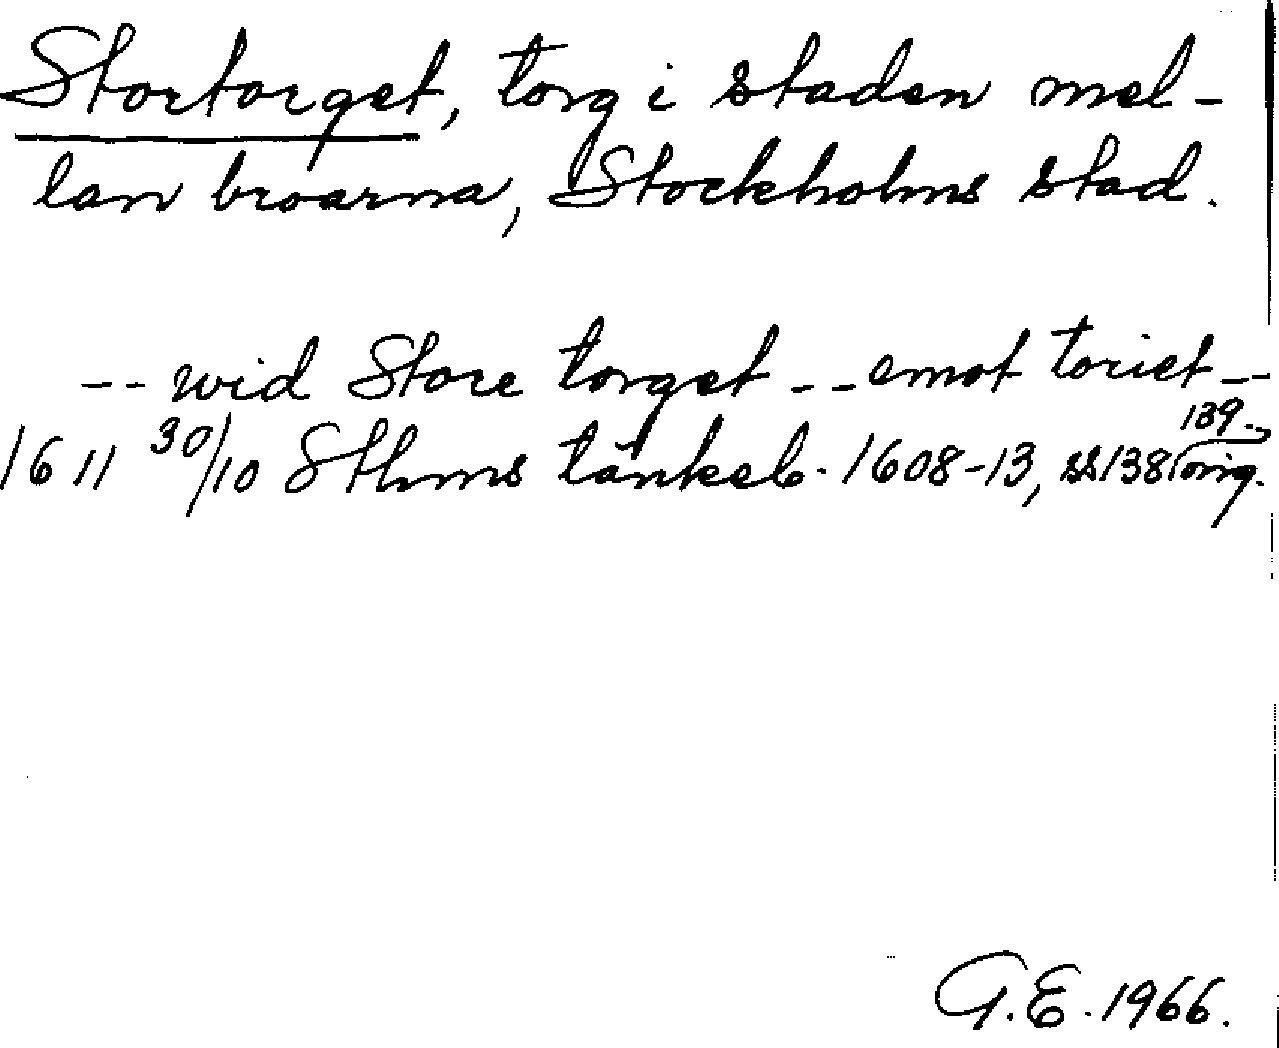 Stortorget, torg i staden mel-
lan broarna, Stockholms stad.
-- wid Store torget -- emot toriet --
1611 30/10 Sthms tänkeb. 1608-13, ss 138, 139. orig.
G.E. 1966.